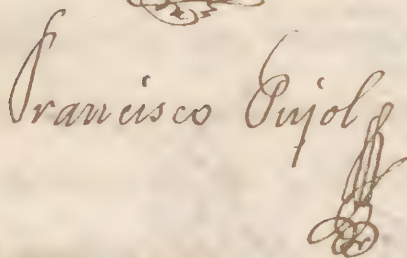 Francisco Pujol